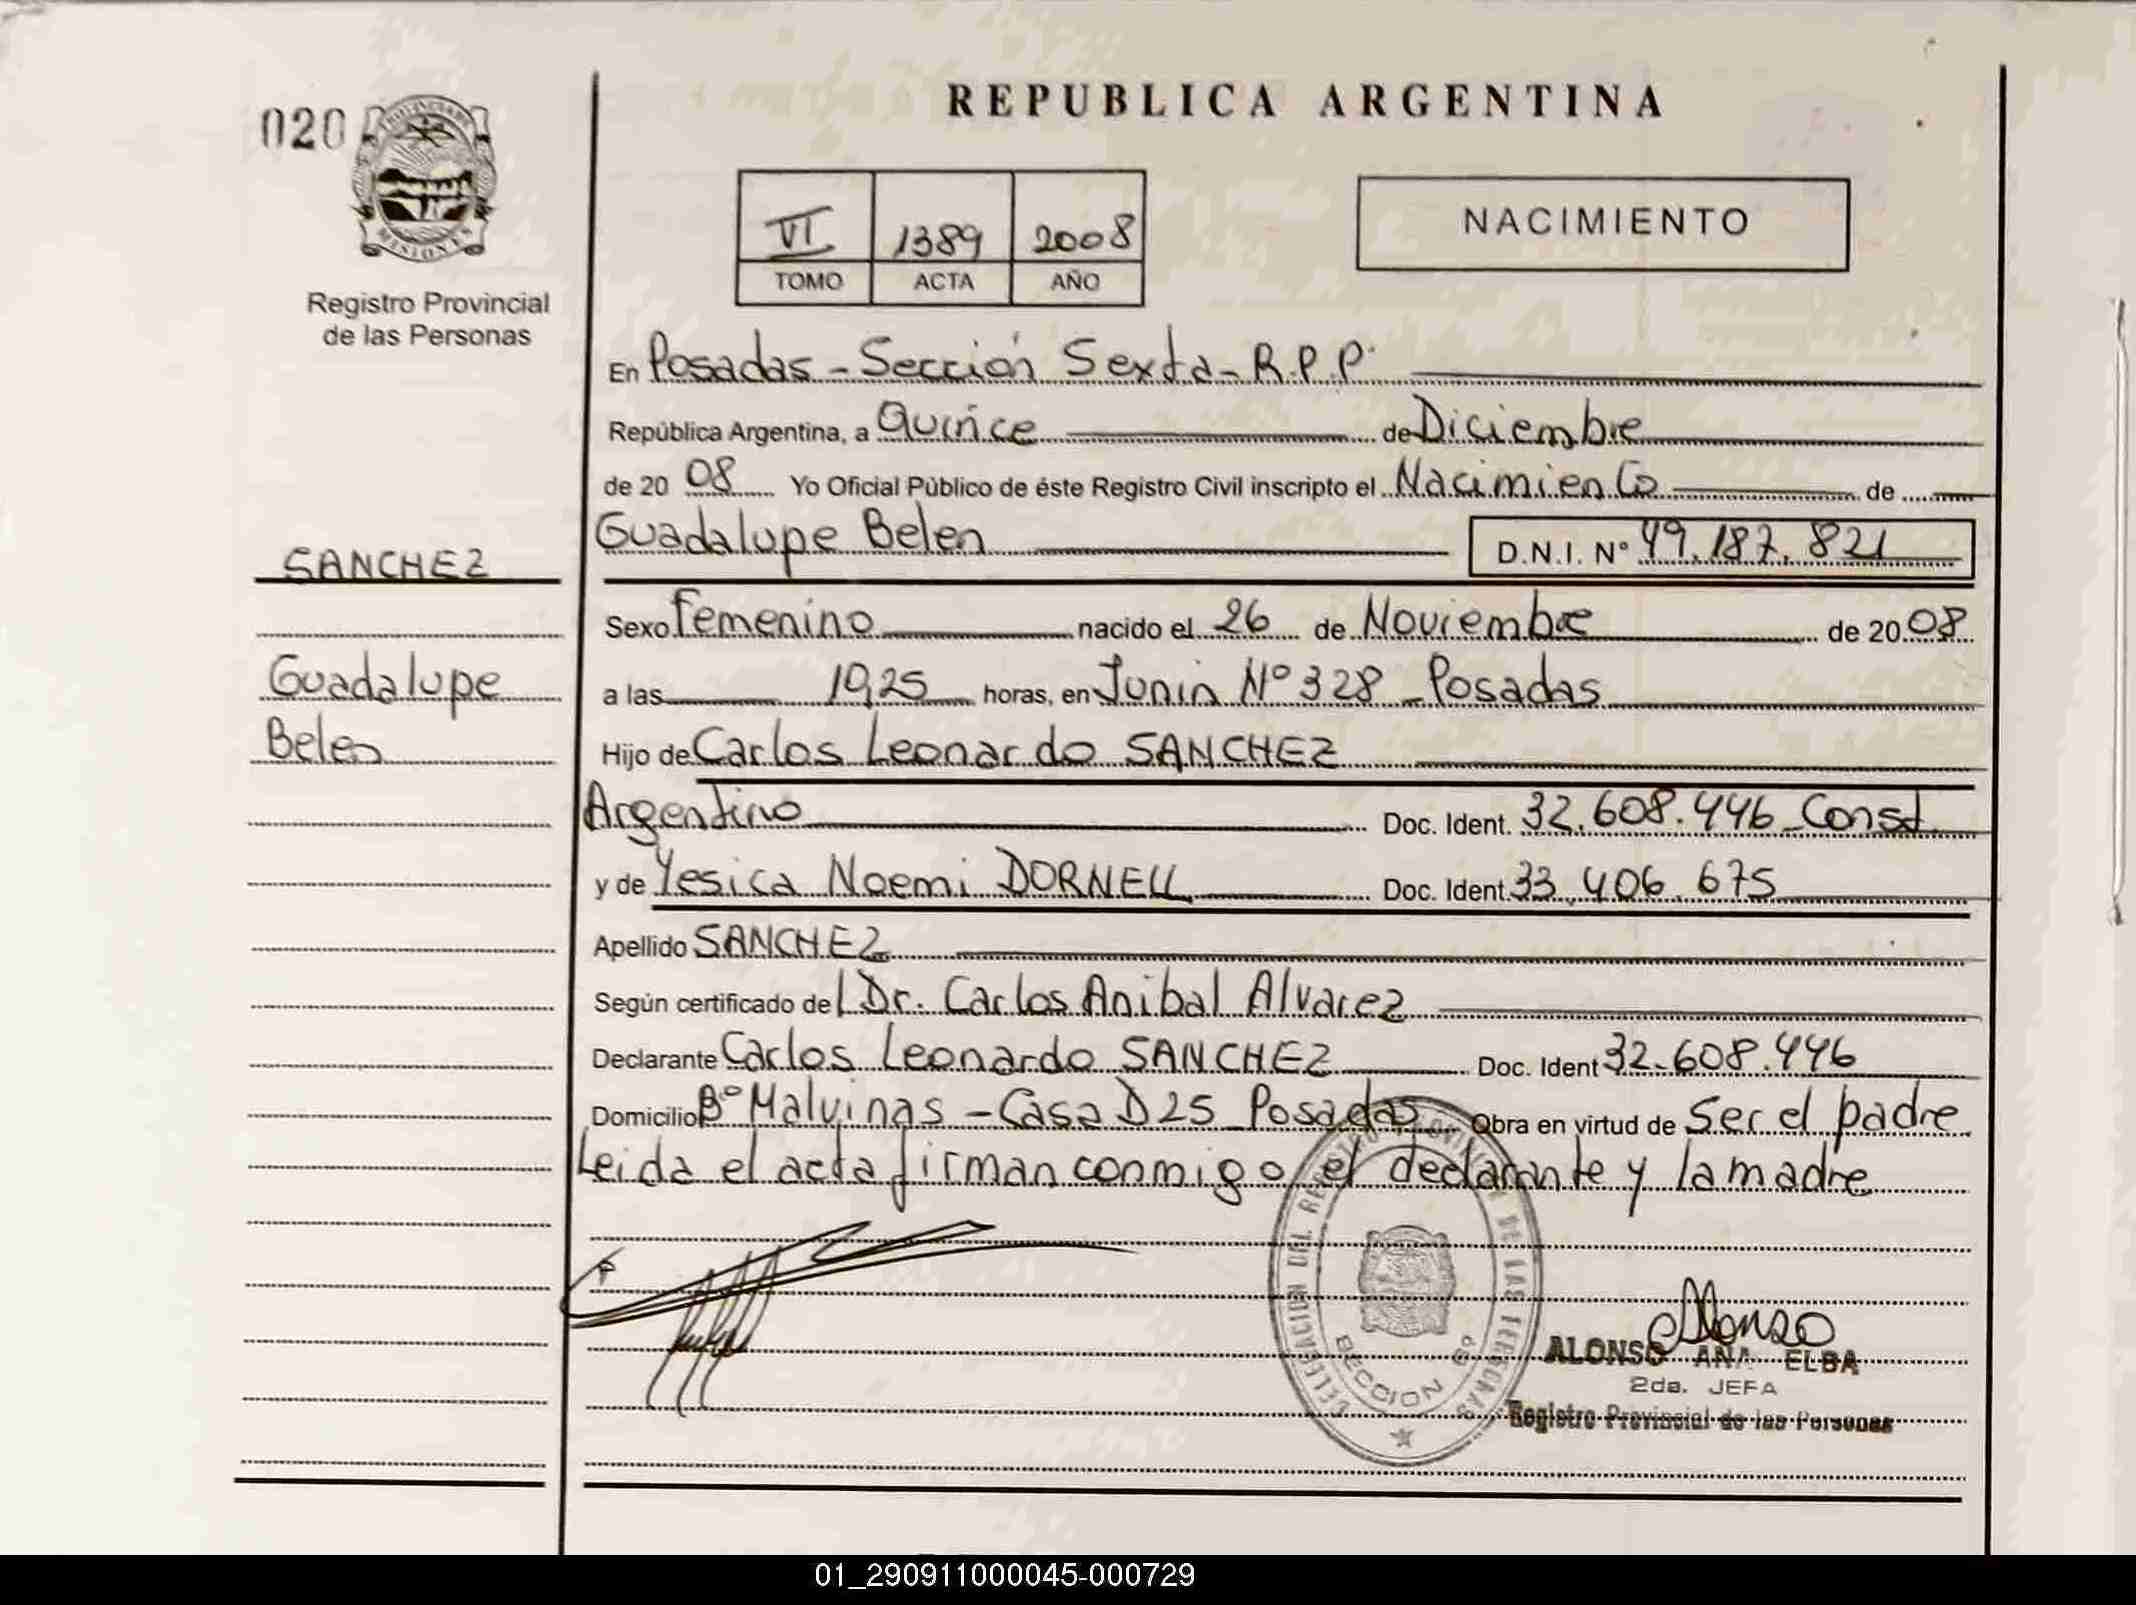 020
PROVINCIA DE
MISIONES
Registro Provincial
de las Personas
SANCHEZ
Guadalupe
Belen
REPUBLICA ARGENTINA
VI 1389 2008
TOMO ACTA AÑO
NACIMIENTO
En Posadas - Sección Sexta - R.P.P.
República Argentina, a Quince de Diciembre
de 20 08 Yo Oficial Público de éste Registro Civil inscripto el Nacimiento de
Guadalupe Belen D.N.I. Nº 49.187.821
Sexo Femenino nacido el 26 de Noviembre de 20 08
a las 19,25 horas, en Junin Nº 328 - Posadas
Hijo de Carlos Leonardo SANCHEZ
Argentino Doc. Ident. 32.608.446 - Const.
y de Yesica Noemi DORNELL Doc. Ident. 33.406.675
Apellido SANCHEZ
Según certificado del Dr. Carlos Anibal Alvarez
Declarante Carlos Leonardo SANCHEZ Doc. Ident 32.608.446
Domicilio Bº Malvinas - Casa D25 Posadas Obra en virtud de Ser el padre
Leida el acta firman conmigo el declarante y la madre
DELEGACION DEL REGISTRO PROVINCIAL DE LAS PERSONAS
SECCION 6ª
Alonso
ALONSO ANA ELBA
2da. JEFA
Registro Provincial de las Personas
01_290911000045-000729